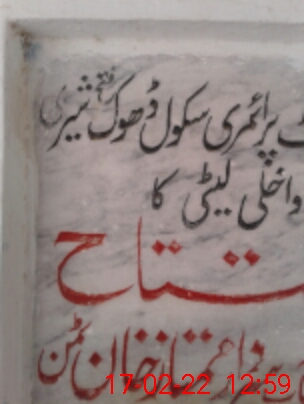 پرائمری سکول ڈھوک فتح شیر
داخلی لیٹی کا
افتتاح
ممتاز خان ٹمن
17-02-22 12:59